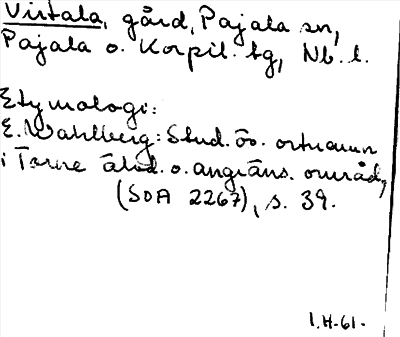 Virtala, gård, Pajala sn,
Pajala o. Korpil. tg, Nb. l.
Etymologi:
E. Wahlberg: Stud. öv. ortnamn
i Torne älvd. o. angräns. områd,
(SOA 2267), s. 39.
1.H.61.